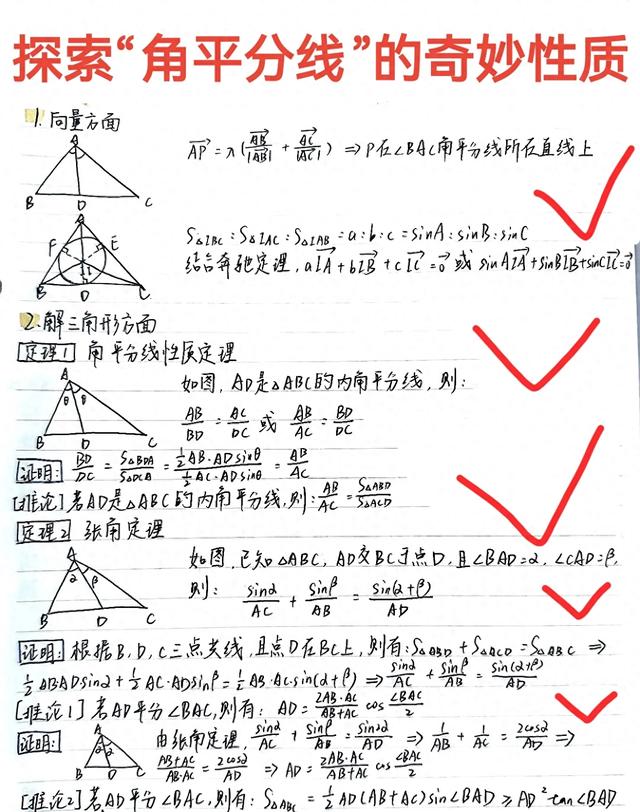 探索“角平分线”的奇妙性质
1. 向量方面
A
B D C
AP→ = λ(AB→/|AB→| + AC→/|AC→|) ⇒ P在∠BAC角平分线所在直线上
A
F E
I
B D C
S△IBC : S△IAC : S△IAB = a:b:c = sinA:sinB:sinC
结合奔驰定理, aIA→ + bIB→ + cIC→ = 0→ 或 sinAIA→ + sinBIB→ + sinCIC→ = 0→
2. 解三角形方面
定理1 角平分线性质定理
A
θ θ
B D C
如图, AD是△ABC的内角平分线, 则:
AB/BD = AC/DC 或 AB/AC = BD/DC
证明: BD/DC = S△BDA/S△DCA = (½AB·ADsinθ)/(½AC·ADsinθ) = AB/AC
[推论] 若AD是△ABC的内角平分线, 则: AB/AC = S△ABD/S△ACD
定理2 张角定理
A
α β
B D C
如图, 已知△ABC, AD交BC于点D, 且∠BAD=α, ∠CAD=β,
则: sinα/AC + sinβ/AB = sin(α+β)/AD
证明: 根据B, D, C三点共线, 且点D在BC上, 则有: S△ABD + S△ACD = S△ABC ⇒
½ABADsinα + ½AC·ADsinβ = ½AB·AC·sin(α+β) ⇒ sinα/AC + sinβ/AB = sin(α+β)/AD
[推论1] 若AD平分∠BAC, 则有: AD = 2AB·AC/(AB+AC) cos ∠BAC/2
证明:
A
α α
B D C
由张角定理, sinα/AC + sinβ/AB = sin2α/AD ⇒ 1/AB + 1/AC = 2cosα/AD ⇒
(AB+AC)/(AB·AC) = 2cosα/AD ⇒ AD = 2AB·AC/(AB+AC) cos ∠BAC/2
[推论2] 若AD平分∠BAC, 则有: S△ABC = ½AD(AB+AC)sin∠BAD ≥ AD²tan∠BAD